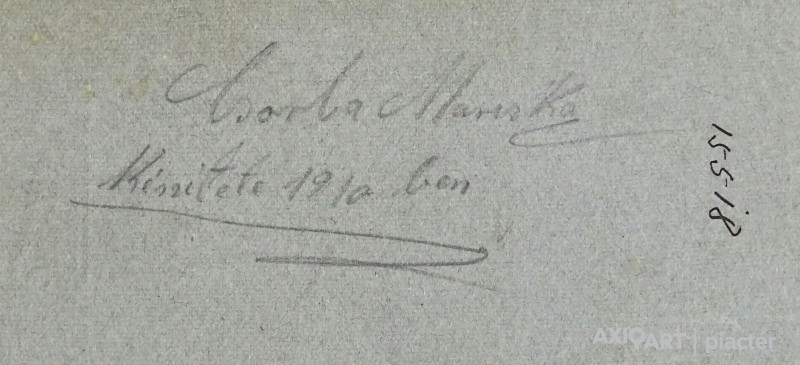 Csorba Mariska
Készitete 1910 ben
15-5-18
AXIOART | piactér